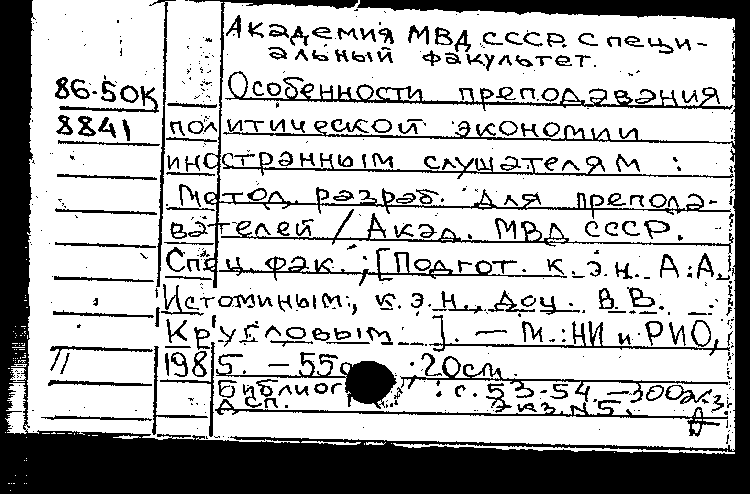 Академия МВД СССР. Специ-
альный факультет.
86-50К Особенности преподавания
8841 политической экономии
иностранным слушателям :
Метод. разраб. для препода-
вателей / Акад. МВД СССР.
Спец. фак. ; [Подгот. к. э. н. А. А.
Истоминым, к. э. н., доц. В. В.
Кругловым]. — М. : НИ и РИО,
11 1985. — 55 ; 20 см.
Библиог : с. 53-54. — 300 экз.
ДСП. Экз. N 5.